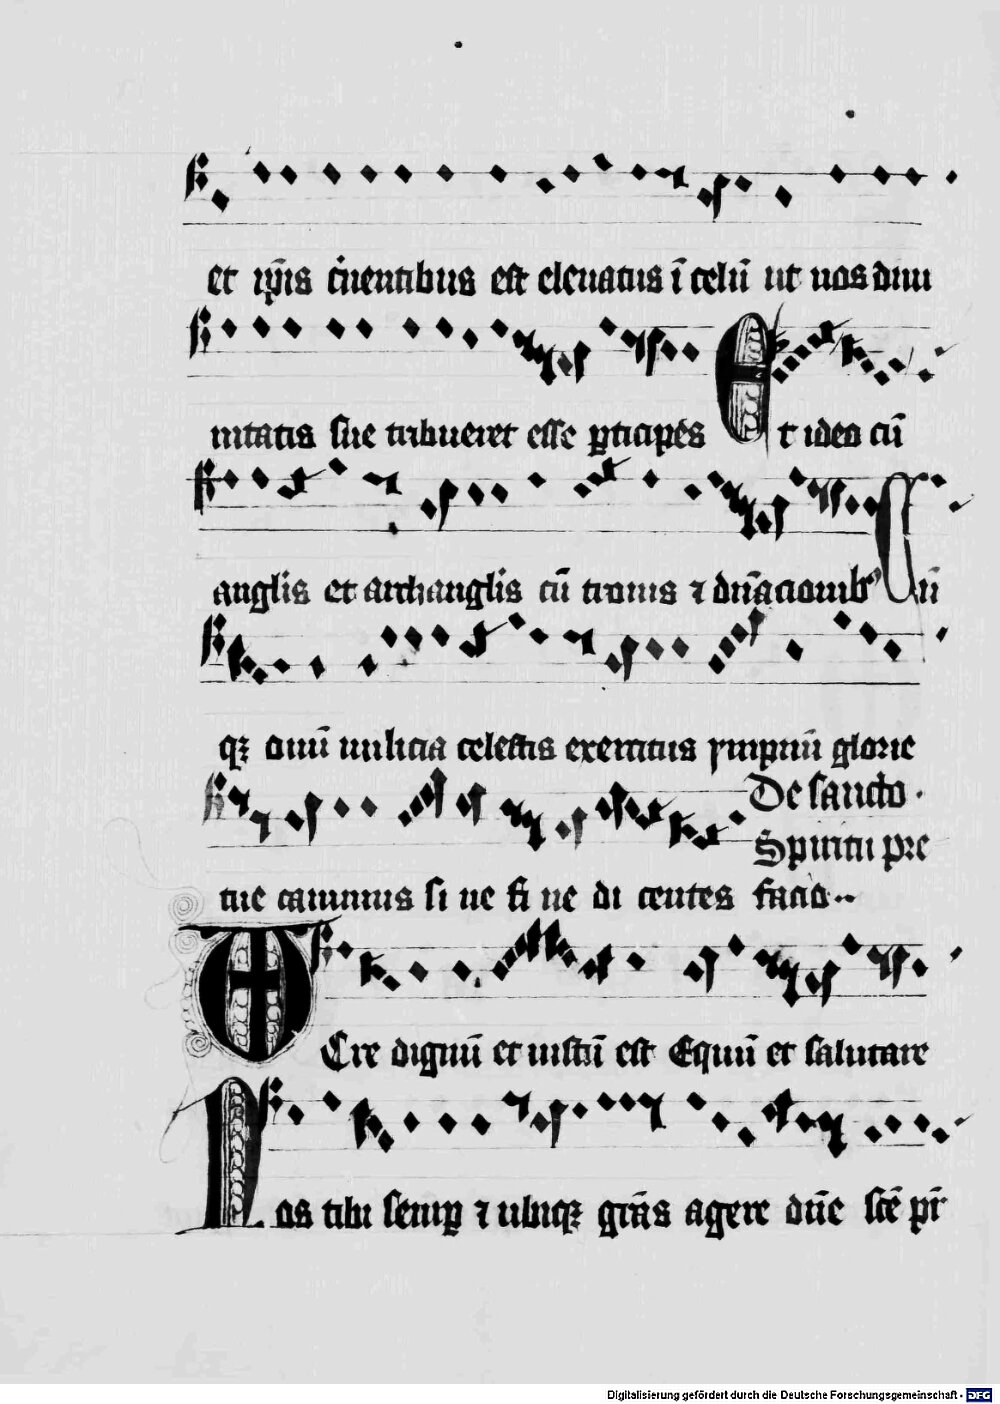 et ip̄is c̄nentibus est eleuatus ī celū ut nos diui
nitatis sue tribueret esse ꝑticipes Et ideo cū
anglis et archanglis cū tronis ⁊ dn̄acionibꝰ Cū
qꝫ omī milicia celestis exercitus ympnū glorie
De sancto
Spiritu pre
tue canimus si ne fi ne di centes facio··
VEre dignū et iustū est Equū et salutare
Nos tibi semꝑ ⁊ ubiqꝫ grās agere dn̄e scē pr̄
Digitalisierung gefördert durch die Deutsche Forschungsgemeinschaft - DFG